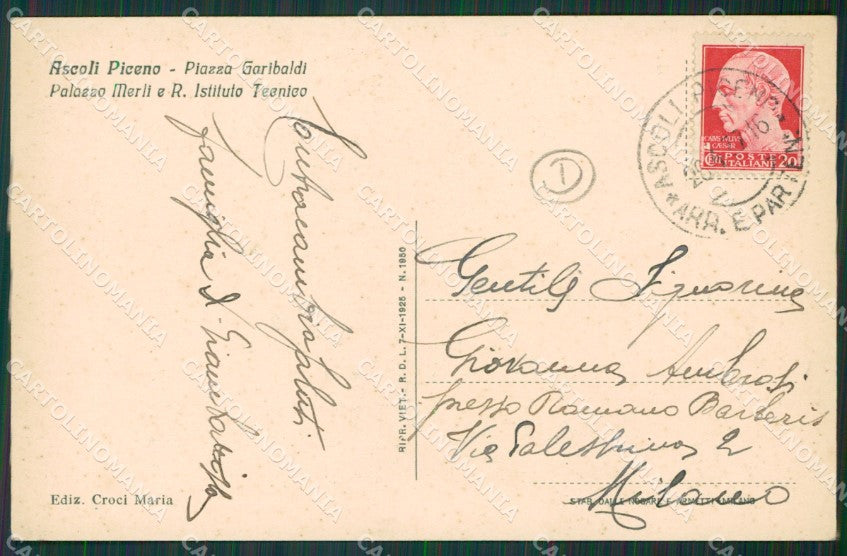 Ascoli Piceno - Piazza Garibaldi
Palazzo Merli e R. Istituto Tecnico
Contraccambio saluti
famiglia
Ediz. Croci Maria
RIPR. VIET. - R. D. L. 7-XI-1925 - N. 1950
1
POSTE
ITALIANE
20
ASCOLI PICENO
ARR. E PARTENZ
Gentile Signorina
Giovanna Ambrosi
presso Romano Barberis
Via Palestrina 2
Milano
STAB. DALLE NOGARE E ARMETTI - MILANO
CARTOLINOMANIA